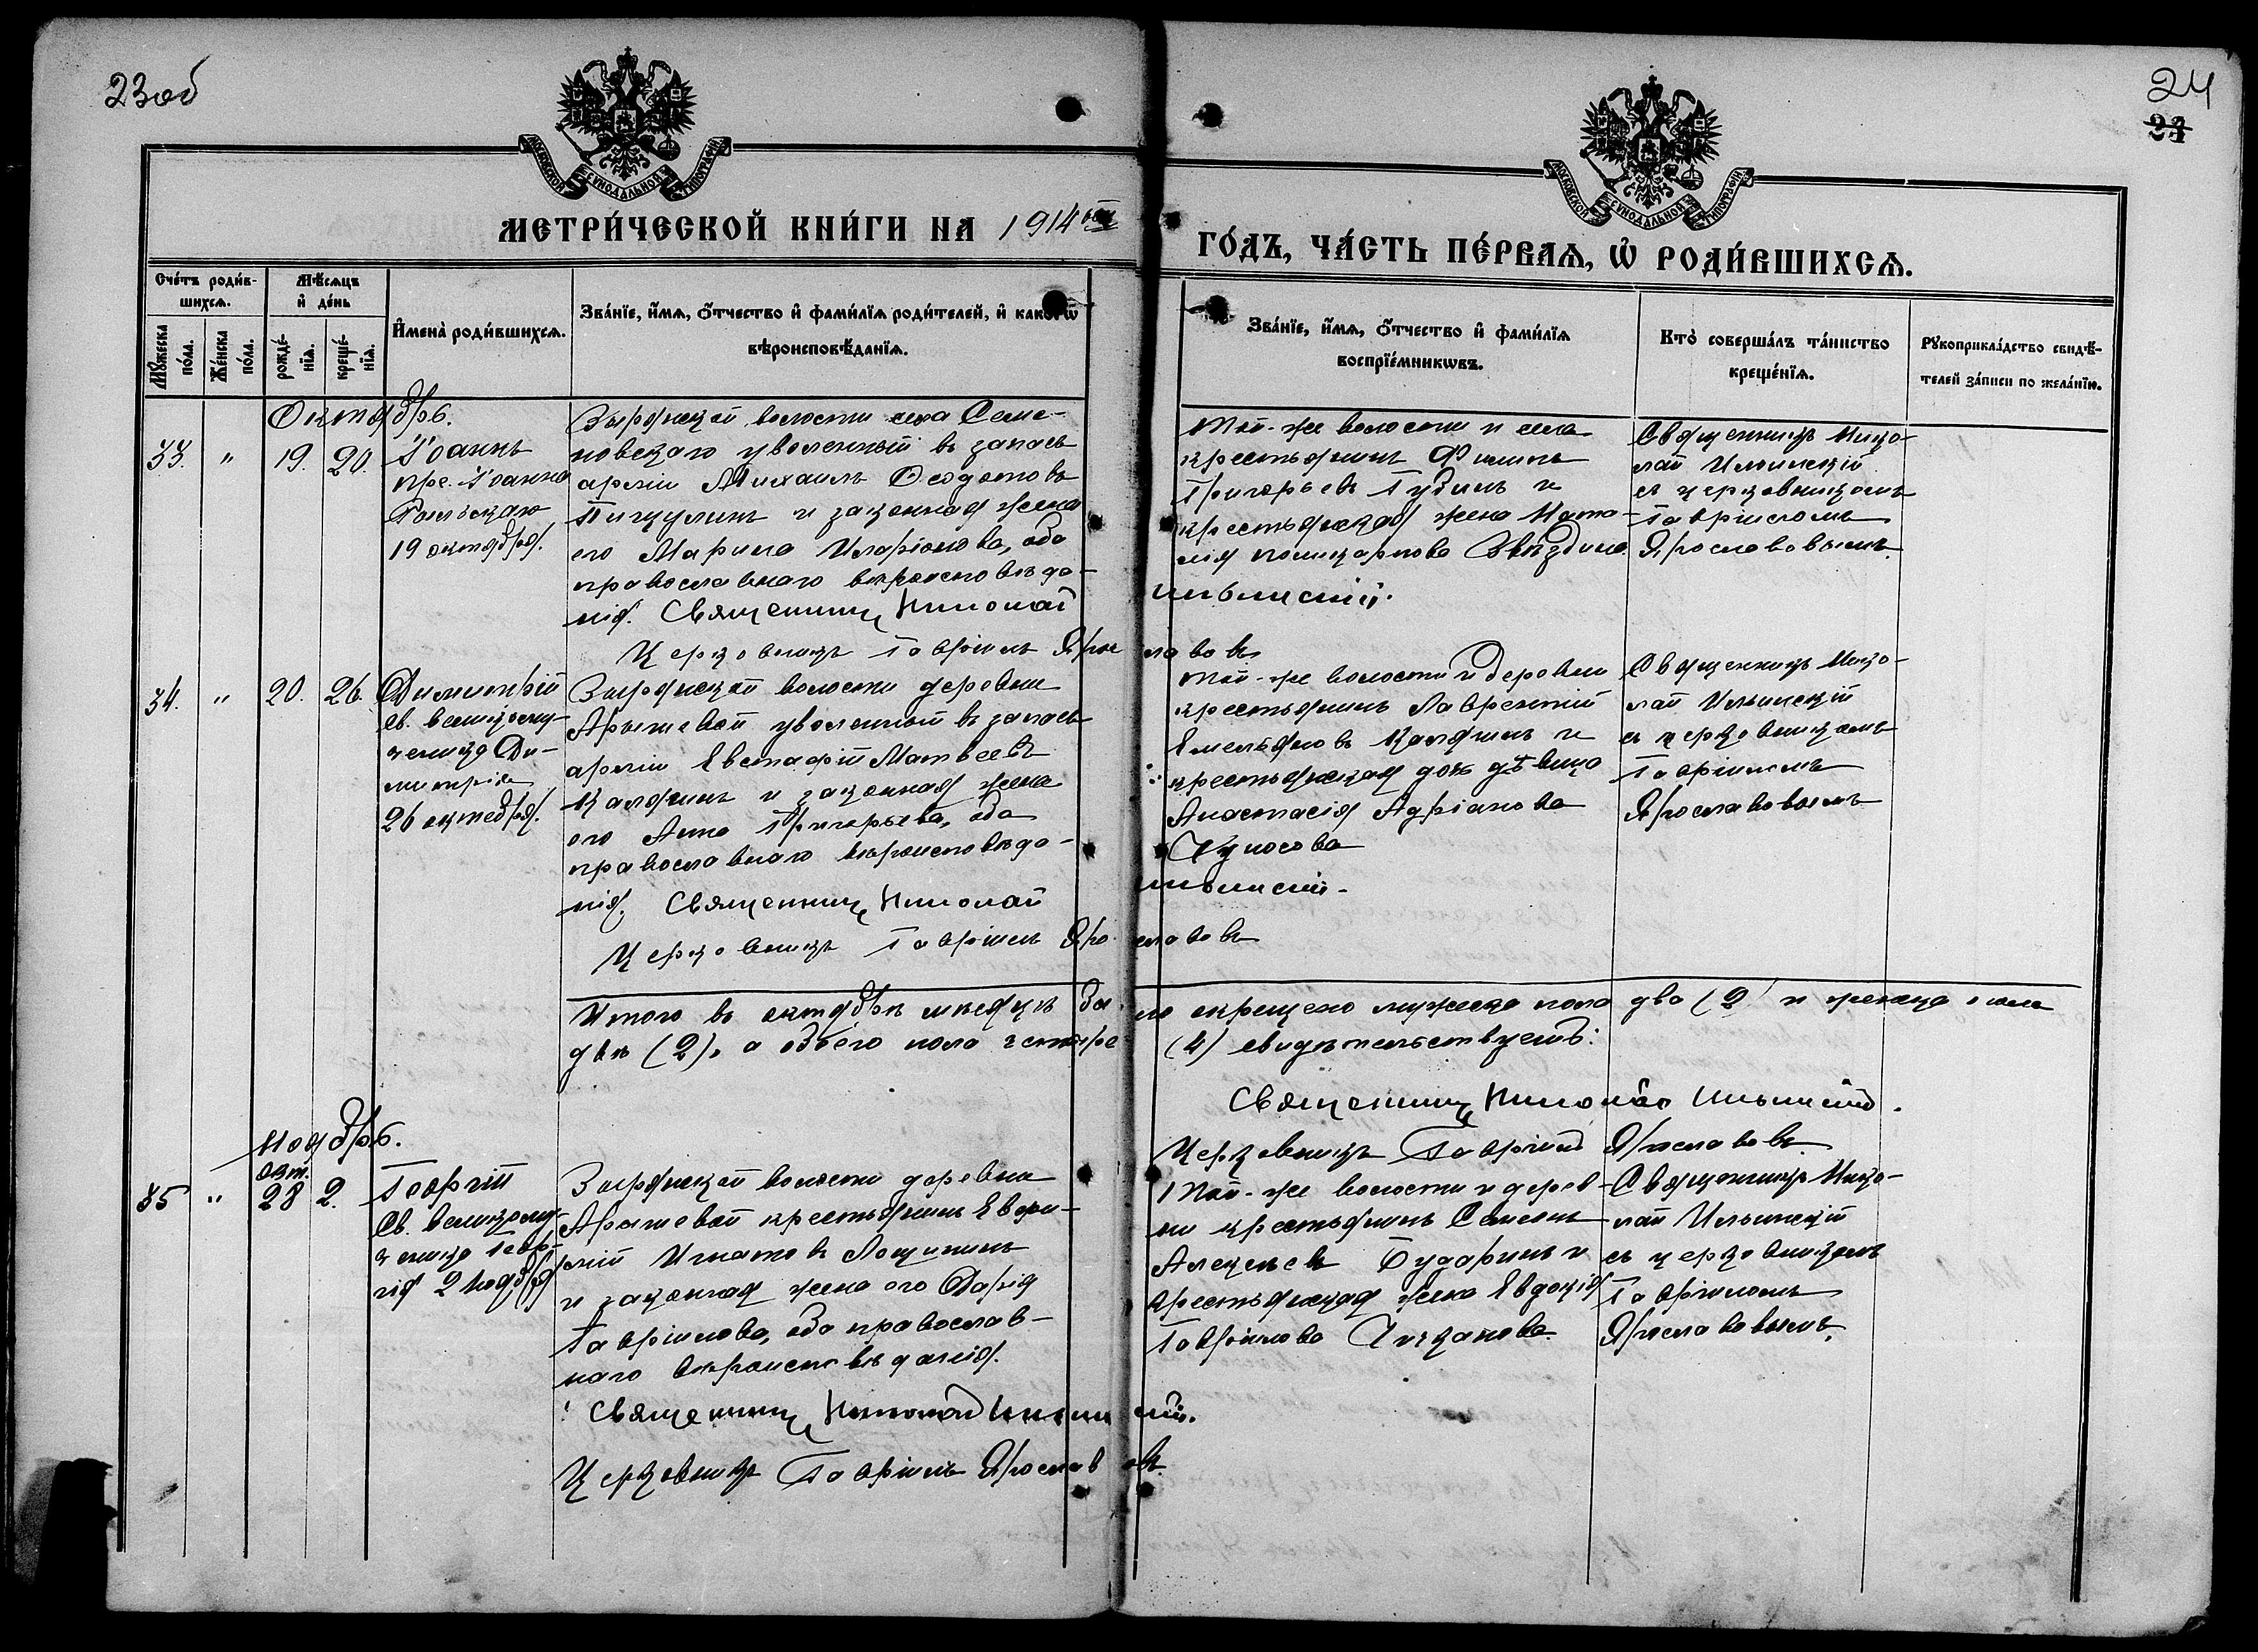 23об
24
24
МОСКОВСКОЙ СѴНОДАЛЬНОЙ ТИПОГРАФІИ
МОСКОВСКОЙ СѴНОДАЛЬНОЙ ТИПОГРАФІИ
МЕТРИ́ЧЕСКОЙ КНИ́ГИ НА 1914
ГО́ДЪ, ЧА́СТЬ ПЕ́РВАѦ, Ѡ҆ РОДИ́ВШИХСѦ.
Сче́тъ роди́в-
шихсѧ.
Мꙋ́жеска по́ла.
Же́нска по́ла.
Мѣ́сѧцъ и҆ де́нь
рожде́-нїѧ.
креще́-нїѧ.
И҆мена̀ роди́вшихсѧ.
Зва́нїе, и҆́мѧ, ѻ҆́тчество и҆ фами́лїѧ роди́телей, и҆ како́гѡ
вѣроисповѣ́данїѧ.
Зва́нїе, и҆́мѧ, ѻ҆́тчество и҆ фами́лїѧ
воспрїе́мникѡвъ.
Кто̀ соверша́лъ та́инство
креще́нїѧ.
Рꙋкоприкла́дство свидѣ́-
телей за́писи по жела́нїю.
Октябрь.
33. " 19. 20.
Іоаннъ
пре. Іоанна
Рыльскаго
19 октября.
волости села Семе-
новскаго уволенный въ запасъ
арміи Михаилъ Ѳеодотовъ
Пищулинъ и законная жена
его Марина Иларіонова, оба
православнаго вѣроисповѣда-
нія. Священникъ Николай Ильинскій.
Церковникъ Гавріилъ Ярославовъ
Той-же волости и села
крестьянинъ Филиппъ
Григорьевъ Губинъ и
крестьянская жена Ната-
лія Поликарпова Звѣздина.
Священникъ Нико-
лай Ильинскій
съ церковникомъ
Гавріиломъ
Ярославовымъ.
34. " 20. 26.
Димитрій
св. великому-
ченика Ди-
митрія
26 октября.
волости деревни
уволенный въ запасъ
арміи Евстафій Матвеевъ
Калякинъ и законная жена
его Анна Григорьева, оба
православнаго вѣроисповѣда-
нія. Священникъ Николай Ильинскій.
Церковникъ Гавріилъ Ярославовъ
Той-же волости и деревни
крестьянинъ Лаврентій
Емельяновъ Калякинъ и
крестьянская дочь дѣвица
Анастасія Адріанова
Священникъ Нико-
лай Ильинскій
съ церковникомъ
Гавріиломъ
Ярославовымъ
Итого въ октябрѣ мѣсяцѣ было окрещено мужеска пола два (2) и женска пола
двѣ (2), а обоего пола четыре (4) свидѣтельствуетъ:
Священникъ Николай Ильинскій.
Церковникъ Гавріилъ Ярославовъ.
Ноябрь.
окт.
35 " 28 2.
Георгій
Св. великому-
ченика Геор-
гія 2 ноября
волости деревни
крестьянинъ Евфи-
мій Игнатовъ Лощининъ
и законная жена его Дарія
Гавріилова, оба православ-
наго вѣроисповѣданія.
Священникъ Николай Ильинскій.
Церковникъ Гавріилъ Ярославовъ.
Той-же волости и дерев-
ни крестьянинъ Симеонъ
Алексѣевъ Бударинъ и
крестьянская жена Евдокія
Гавріилова
Священникъ Нико-
лай Ильинскій
съ церковникомъ
Гавріиломъ
Ярославовымъ.